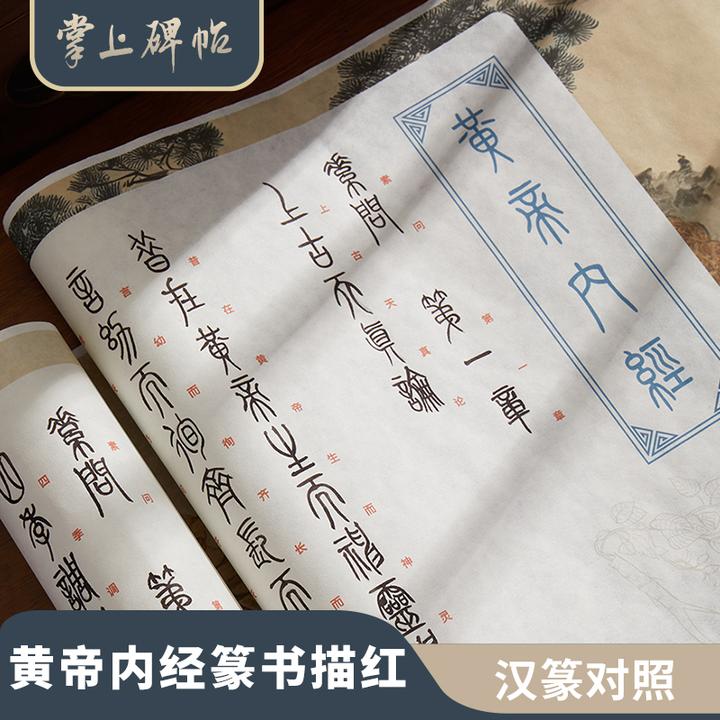 掌上碑帖
黃帝內經
素問 第一章
素问 第一章
上古天真論
上古天真论
昔在黃帝生而神靈
昔在黄帝生而神灵
言幼而徇齊長而
言幼而徇齐长而
素問 第
素问 第
四季調
四季调
黄帝内经篆书描红
汉篆对照